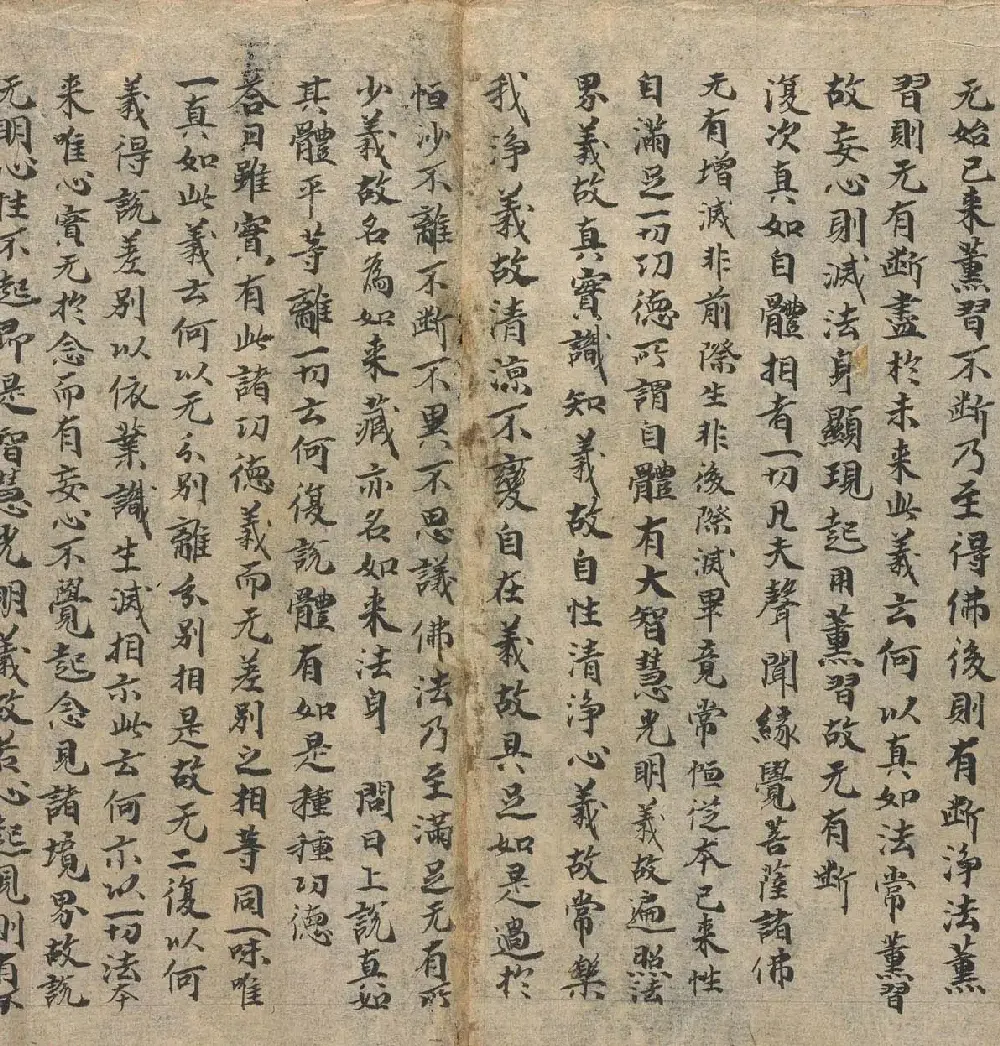 无始已来薰習不断乃至得佛後則有断淨法薰
習則无有断盡於未来此義云何以真如法常薰習
故妄心則滅法身顯現起用薰習故无有断
復次真如自體相者一切凡夫聲聞緣覺菩薩諸佛
无有增減非前際生非後際滅畢竟常恒從本已来性
自滿足一切功德所謂自體有大智慧光明義故遍照法
界義故真實識知義故自性清淨心義故常樂
我淨義故清涼不變自在義故具足如是過於
恒沙不離不断不異不思議佛法乃至滿足无有所
少義故名為如来藏亦名如来法身 問曰上說真如
其體平等離一切云何復說體有如是種種功德
荅曰雖實有此諸功德義而无差別之相等同一味唯
一真如此義云何以无分別離分別相是故无二復以何
義得說差別以依業識生滅相示此云何示以一切法本
来唯心實无於念而有妄心不覺起念見諸境界故說
无明心性不起即是智慧光明義故若心起見則有不